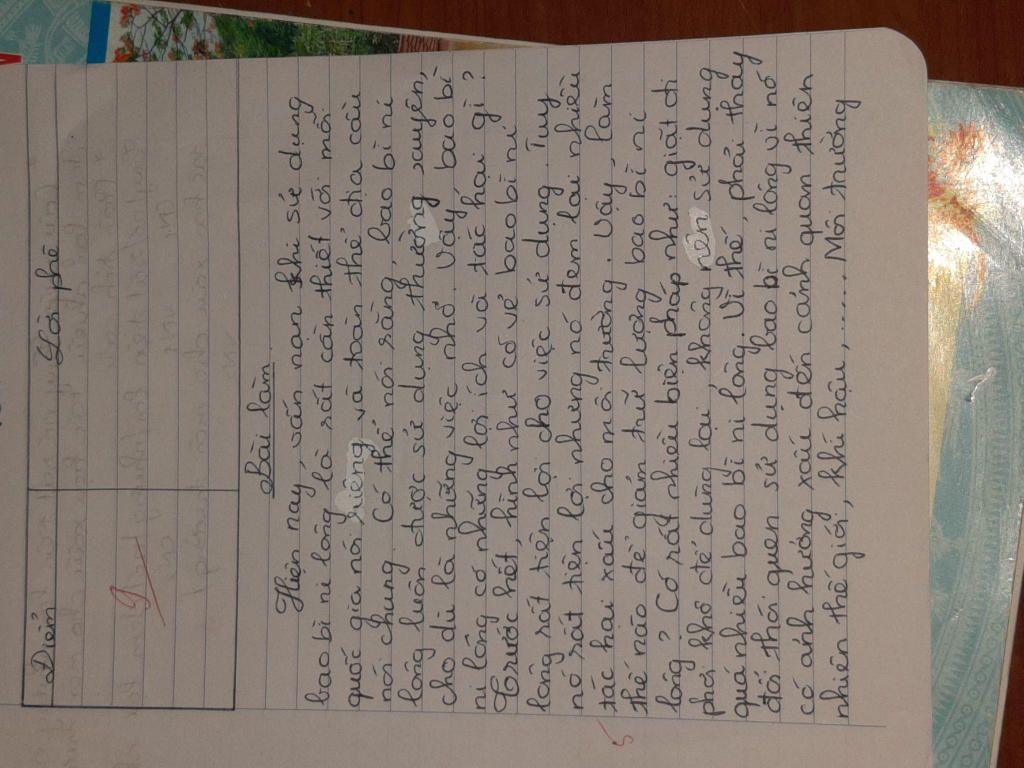 Điểm
Lời phê
9
Bài làm
Hiện nay, vấn nạn khi sử dụng
bao bì ni lông là rất cần thiết với mỗi
quốc gia nói riêng và toàn thể địa cầu
nói chung. Có thể nói rằng, bao bì ni
lông luôn được sử dụng thường xuyên,
cho dù là những việc nhỏ. Vậy, bao bì
ni lông có những lợi ích và tác hại gì?
Trước hết, hình như có vẻ bao bì ni
lông rất tiện lợi cho việc sử dụng. Tuy
nó rất tiện lợi nhưng nó đem lại nhiều
tác hại xấu cho môi trường. Vậy, làm
thế nào để giảm thứ lượng bao bì ni
lông? Có rất nhiều biện pháp như: giặt đi
phơi khô để dùng lại, không nên sử dụng
quá nhiều bao bì ni lông. Vì thế, phải thay
đổi thói quen sử dụng bao bì ni lông vì nó
có ảnh hưởng xấu đến cảnh quan thiên
nhiên thế giới, khí hậu,...... Môi trường